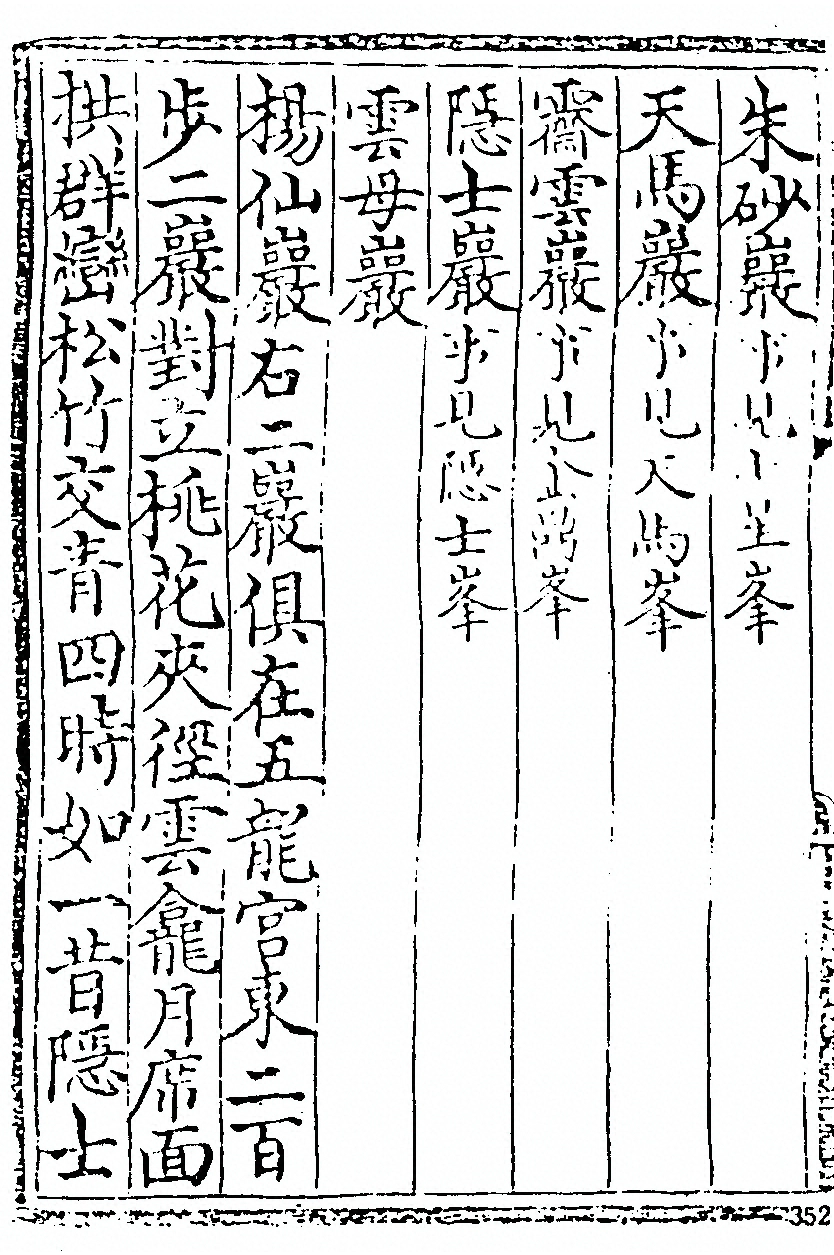 朱砂巖事見峯
天馬巖事見天馬峯
齋雲巖事見峯
隱士巖事見隱士峯
雲母巖
楊仙巖右二巖俱在五龍宮東二百
步二巖對立桃花夾徑雲龕月席面
拱群巒松竹交青四時如一昔隱士
352